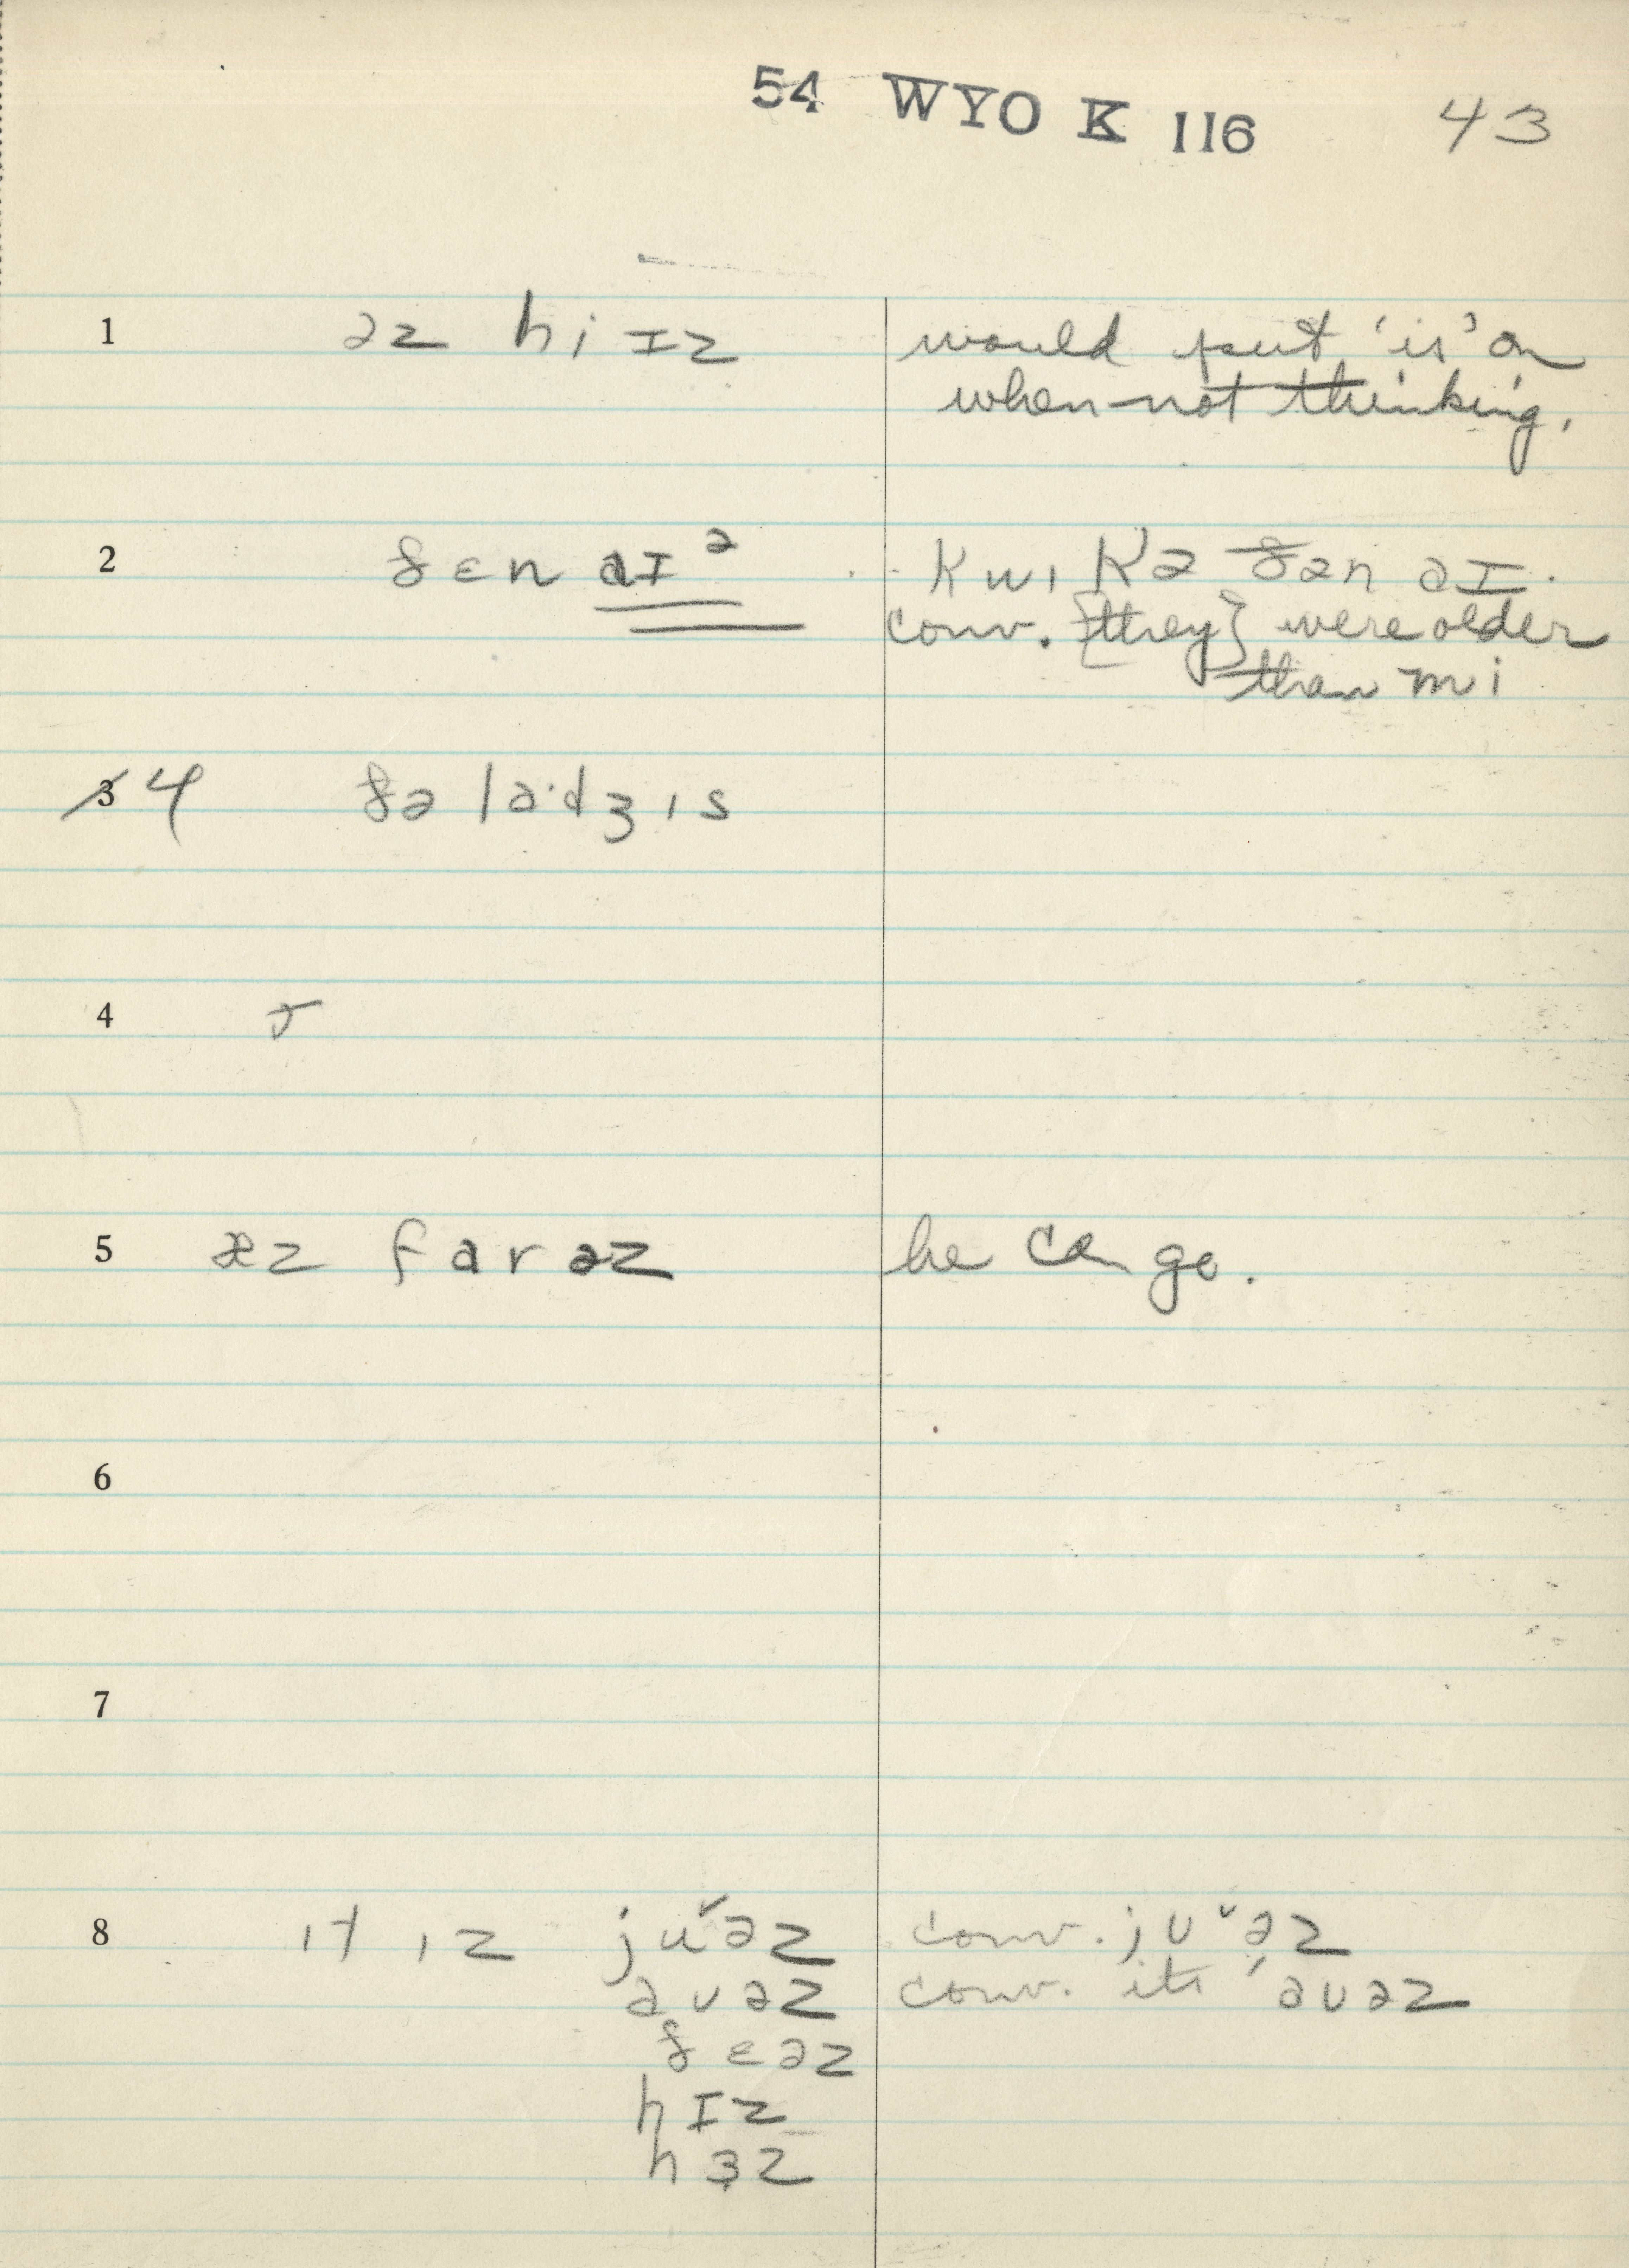 54 WYO K 116 43
1 əz hi ɪz would put 'is' on
when not thinking.
2 ðɛn aɪ ² kwɪkə ðən aɪ.
conv. {they} were older
than mi
3 4 ðə la·dʒɪs
4
5 æz far əz he can go.
6
7
8 ɪt ɪz juˇəz conv. jʊˇəz
aʊəz conv. its 'aʊəz
ðɛəz
hɪz
hɜz